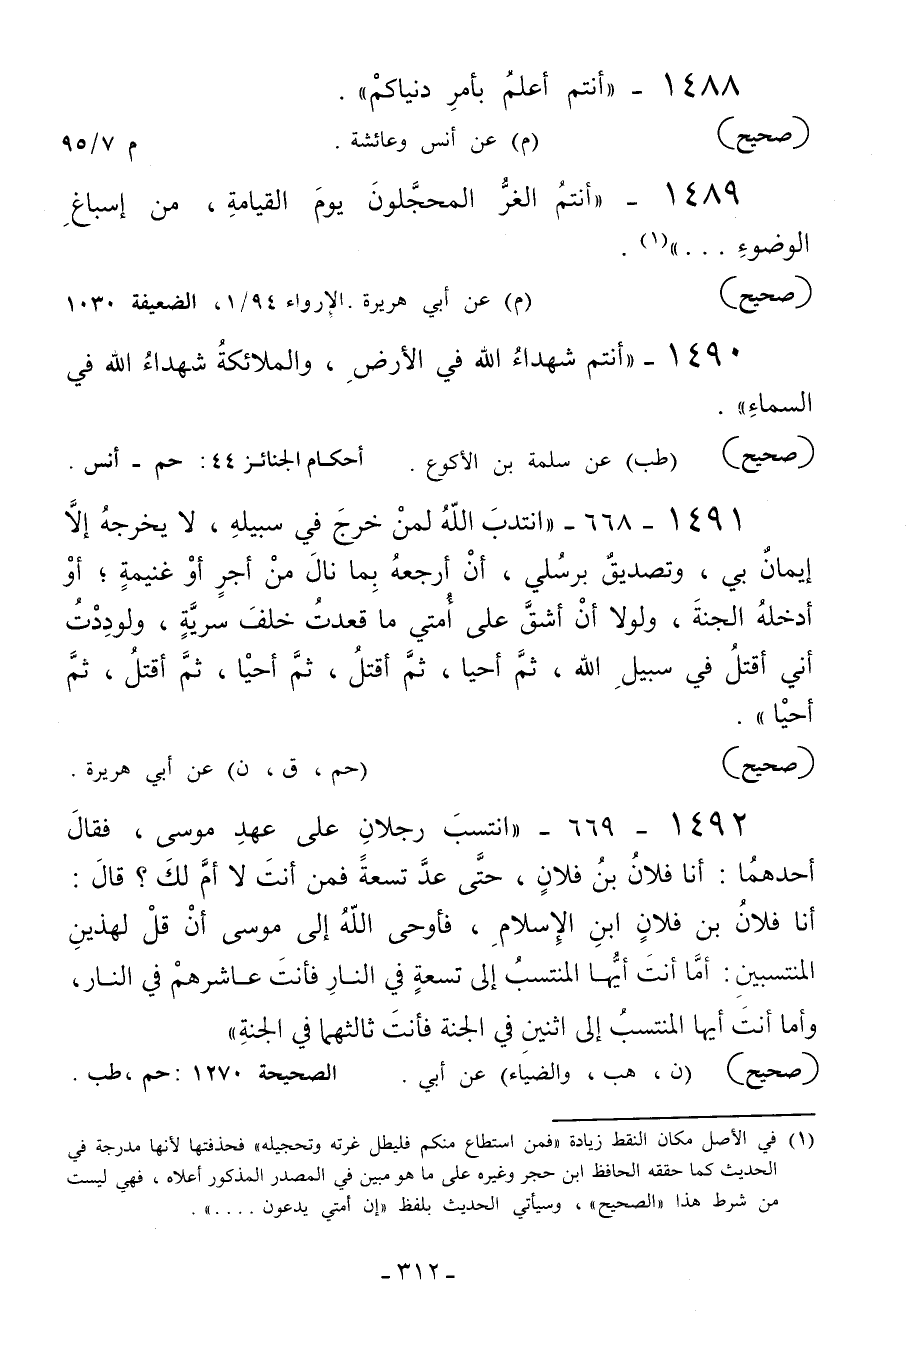 ١٤٨٨ ـ «أنتم أعلمُ بأمرِ دنياكمْ» .
(صحيح) (م) عن أنس وعائشة . م ٩٥/٧
١٤٨٩ ـ «أنتمُ الغرُّ المحجَّلونَ يومَ القيامةِ ، من إسباغِ
الوضوءِ . . . »(١) .
(صحيح) (م) عن أبي هريرة .الإرواء ١/٩٤ ، الضعيفة ١٠٣٠
١٤٩٠ ـ «أنتم شهداءُ الله في الأرضِ ، والملائكةُ شهداءُ الله في
السماءِ» .
(صحيح) (طب) عن سلمة بن الأكوع . أحكام الجنائز ٤٤: حم ـ أنس .
١٤٩١ ـ ٦٦٨ ـ «انتدبَ اللّهُ لمنْ خرجَ في سبيلهِ ، لا يخرجهُ إلَّا
إيمانٌ بي ، وتصديقٌ برسُلي ، أنْ أرجعهُ بِما نالَ منْ أجرٍ أوْ غنيمةٍ ؛ أوْ
أدخلهُ الجنةَ ، ولولا أنْ أشقَّ على أُمتي ما قعدتُ خلفَ سريَّةٍ ، ولودِدْتُ
أني أقتلُ في سبيلِ الله ، ثمَّ أحيا ، ثمَّ أقتلُ ، ثمَّ أحيْا ، ثمَّ أقتلُ ، ثمَّ
أحيْا » .
(صحيح) (حم ، ق ، ن) عن أبي هريرة .
١٤٩٢ ـ ٦٦٩ ـ «انتسبَ رجلانِ على عهدِ موسى ، فقالَ
أحدهمُا : أنا فلانُ بنُ فلانٍ ، حتَّى عدَّ تسعةً فمن أنتَ لا أمَّ لكَ ؟ قالَ :
أنا فلانُ بن فلانٍ ابنِ الإسلامِ ، فأوحى اللّهُ إلى موسى أنْ قلْ لهذينِ
المنتسبينِ : أمَّا أنتَ أيُّها المنتسبُ إلى تسعةٍ في النارِ فأنتَ عاشرهمْ في النار،
وأما أنتَ أيها المنتسبُ إلى اثنينِ في الجنة فأنتَ ثالثهما في الجنةِ»
(صحيح) (ن ، هب ، والضياء) عن أبي . الصحيحة ١٢٧٠ :حم ،طب .
(١) في الأصل مكان النقط زيادة «فمن استطاع منكم فليطل غرته وتحجيله» فحذفتها لأنها مدرجة في
الحديث كما حققه الحافظ ابن حجر وغيره على ما هو مبين في المصدر المذكور أعلاه ، فهي ليست
من شرط هذا «الصحيح» ، وسيأتي الحديث بلفظ «إن أمتي يدعون . . . .» .
ـ ٣١٢ ـ